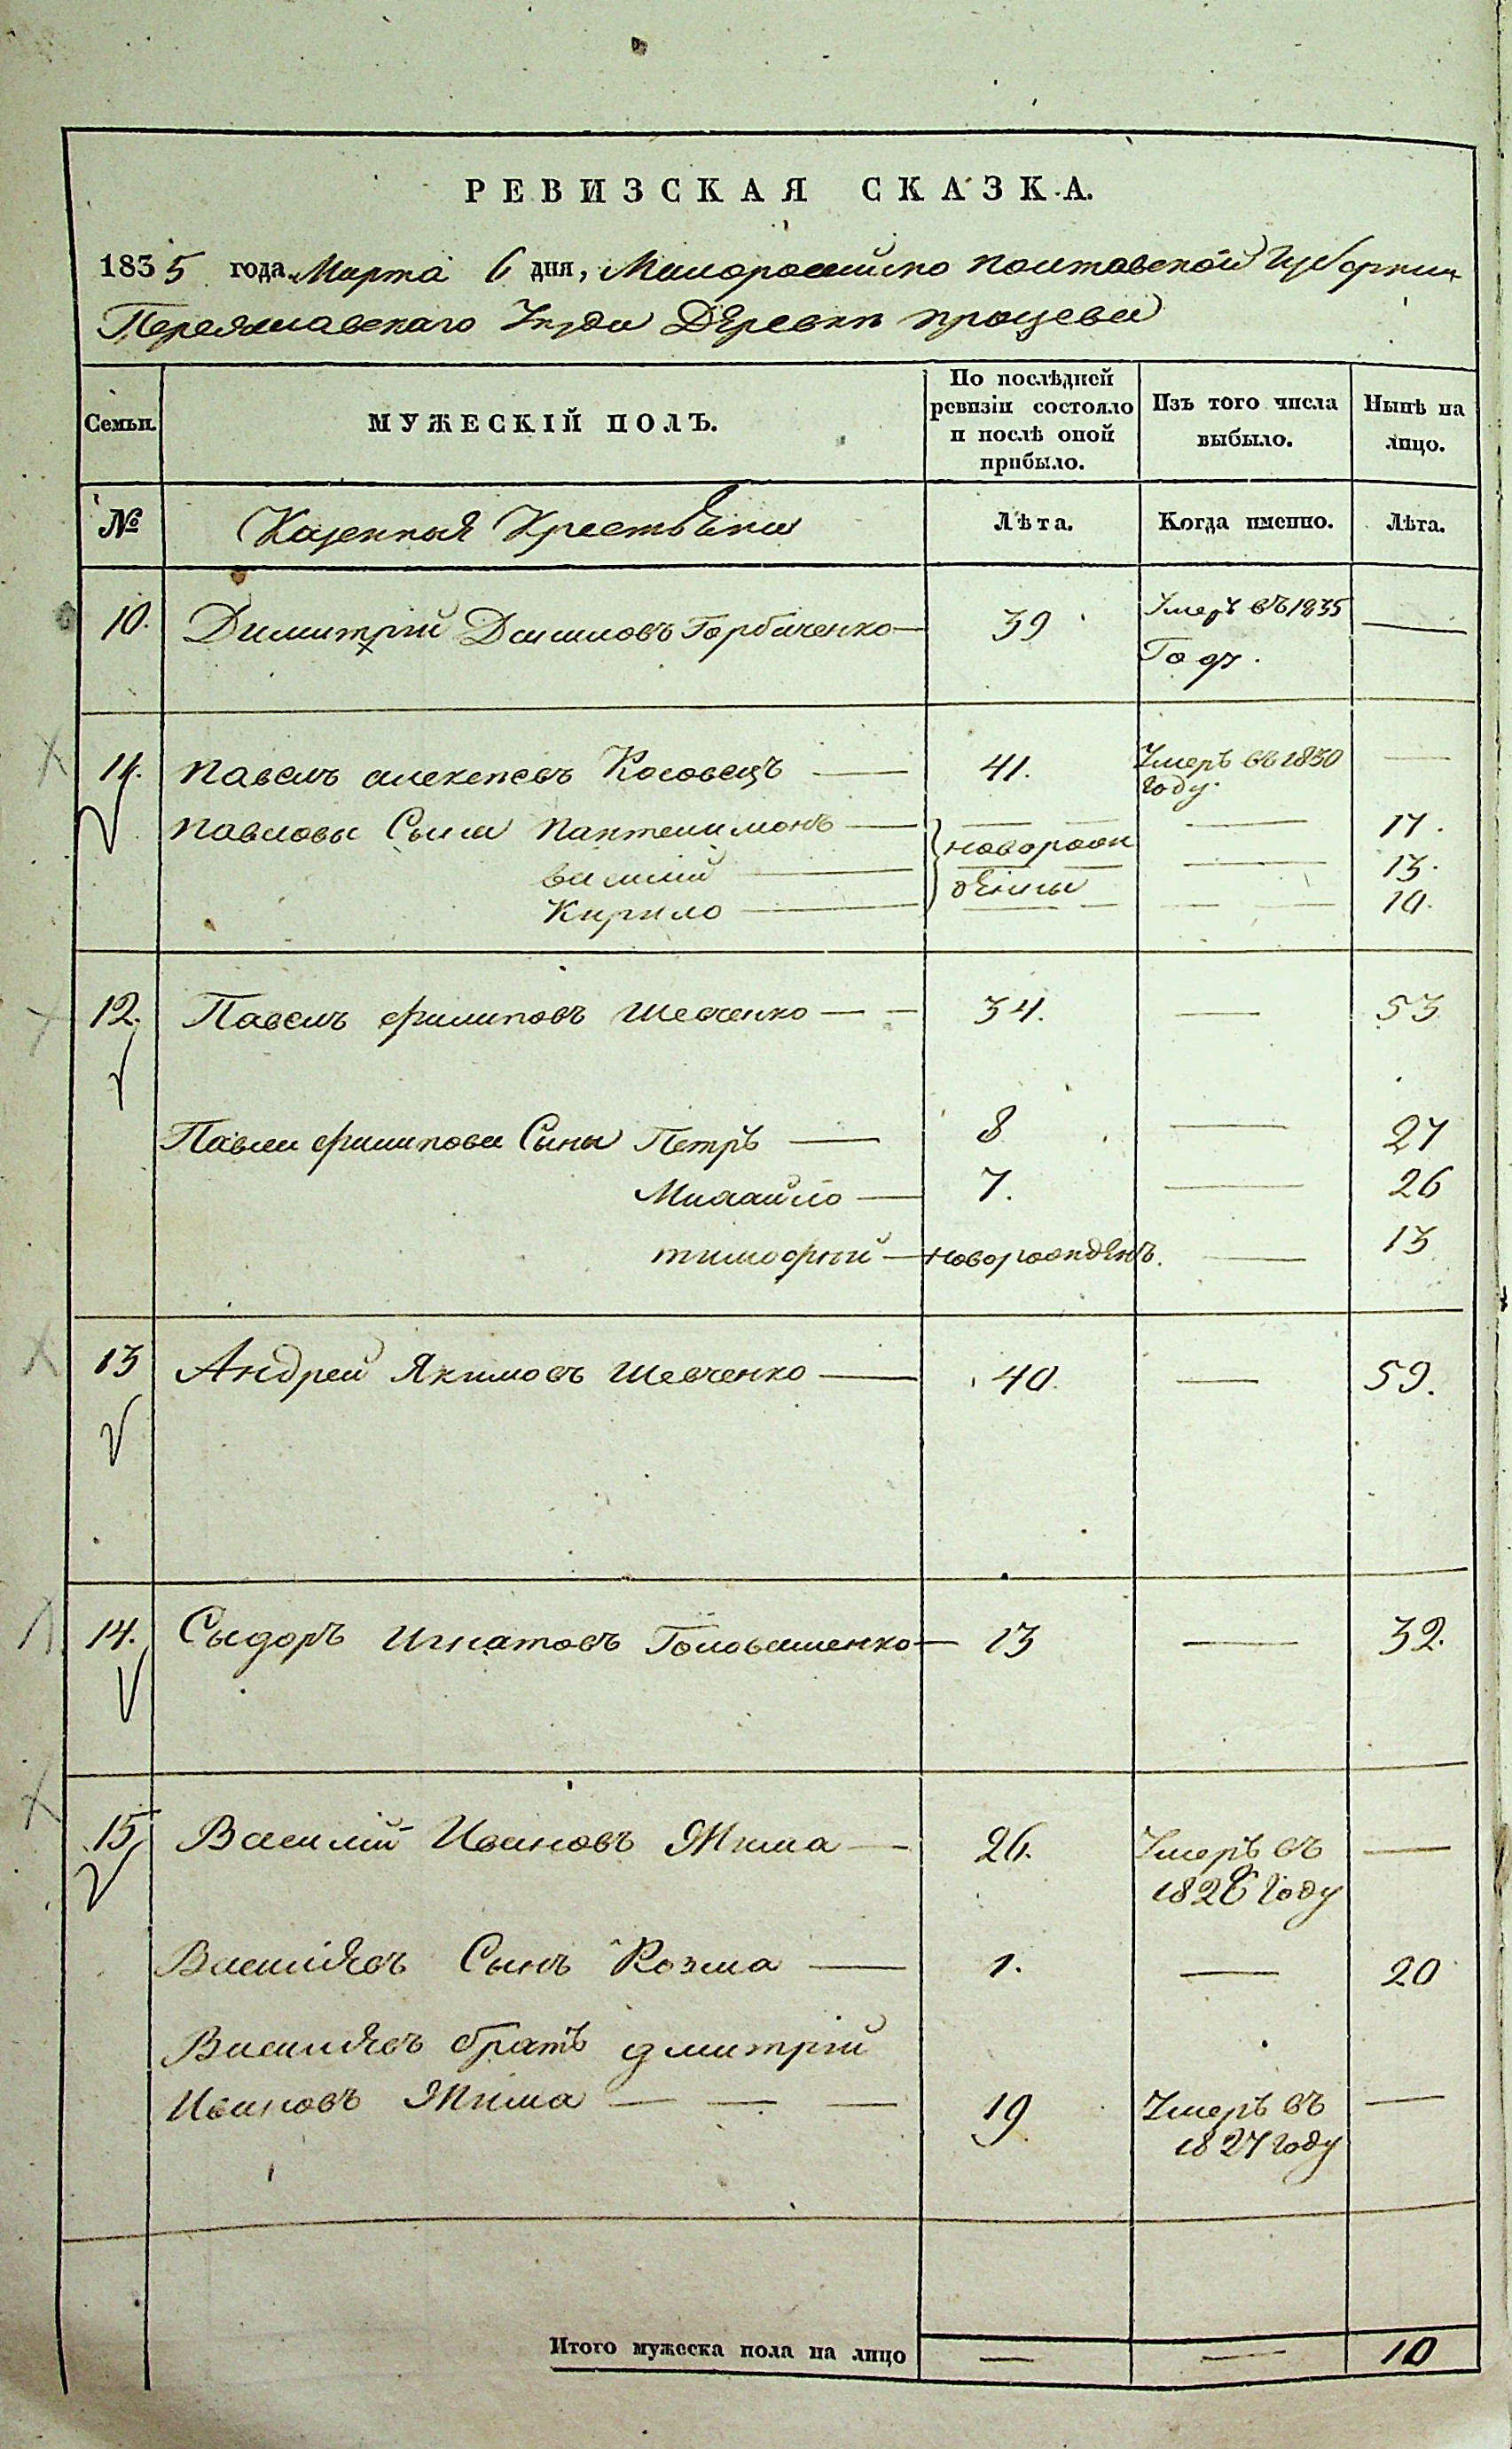 РЕВИЗСКАЯ СКАЗКА.
1835 года Марта 6 дня, Малоросийско полтавской Губернии
Переяславскаго Уезда Деревни процева
Семьи.
МУЖЕСКІЙ ПОЛЪ.
По послѣдней ревизіи состояло и послѣ оной прибыло.
Изъ того числа выбыло.
Нынѣ на лицо.
№ Казенныя Крестьяна Лѣта. Когда именно. Лѣта.
10. Димитрій Данилов Горбаченко — 39 Умеръ въ 1835 —
Году.
11. павелъ алексеевъ Косовецъ — 41. Умеръ въ 1830 —
году.
павловы Сыны пантелимонъ — новорож — 17.
василий — дены — 13.
Кирило — — 10.
12. Павелъ филиповъ Шевченко — — 34. — 53
Павла филипова Сыны Петръ — 8 — 27
Михайло — 7. — 26
тимофий — новорожденъ. — 13
13 Андрей Якимовъ Шевченко — 40. — 59.
14. Сыдоръ Игнатовъ Головашенко — 13 — 32.
15 Василій Ивановъ Жила — 26. Умеръ въ —
1826 Году
Василіевъ Сынъ Козма — 1. — 20
Василиевъ братъ дмитрій
Ивановъ Жила — — — 19 Умеръ въ —
1827 году
Итого мужеска пола на лицо — — 10